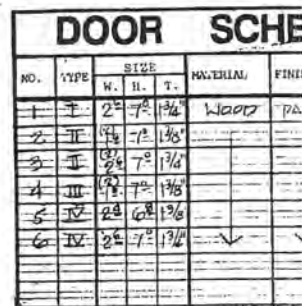 DOOR SCHE
NO. TYPE SIZE MATERIAL FINI
W. H. T.
1 I 2⁶ 7⁰ 1¾" WOOD PA
2 II 7⁰ 1⅜"
3 II (2) 2⁶ 7⁰ 1¾"
4 III (2) 7⁰ 1⅜"
5 IV 2⁴ 6⁸ 1⅜"
6 IV 2⁶ 7⁰ 1¾"